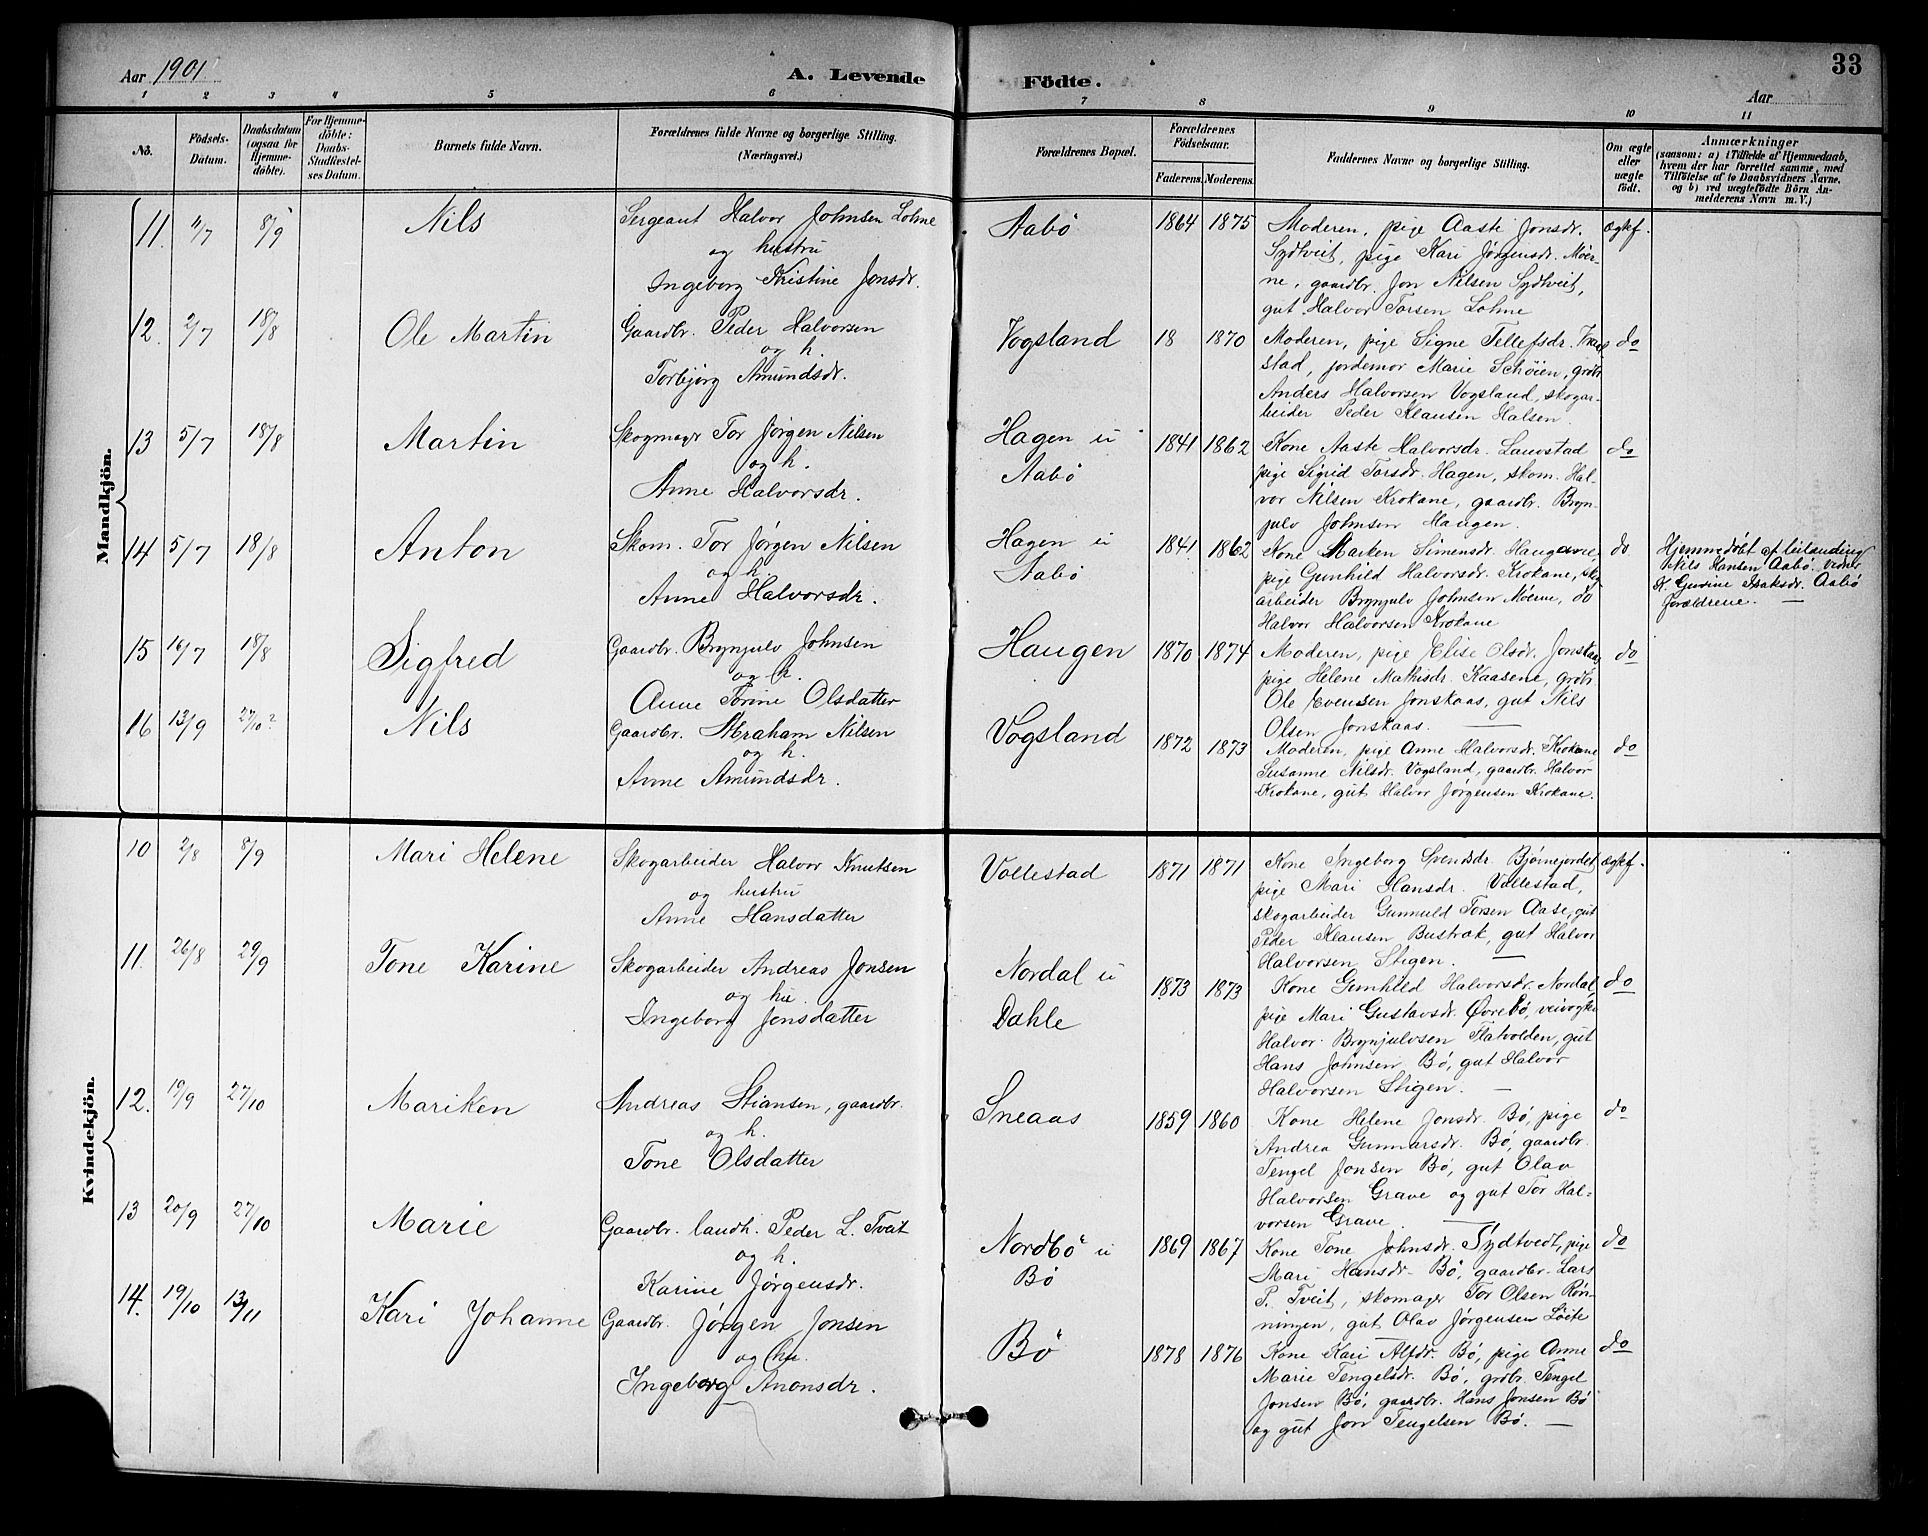 Aar 1901
A. Levende Födte.
33
Aar
1 2 3 4 5 6 7 8 9 10 11
No.
Födsels-Datum.
Daabsdatum (ogsaa for Hjemme-döbte).
For Hjemme-döbte: Daabs-Stadfæstel-ses Datum.
Barnets fulde Navn.
Forældrenes fulde Navne og borgerlige Stilling.
(Næringsvei.)
Forældrenes Bopæl.
Forældrenes Födselsaar.
Faderens. Moderens.
Faddernes Navne og borgerlige Stilling.
Om ægte eller uægte födt.
Anmærkninger
(saasom: a) i Tilfælde af Hjemmedaab,
hvem der har forrettet samme, med
Tilföielse af to Daabsvidners Navne,
og b) ved uægtefödte Börn An-
melderens Navn m. V.)
Mandkjön.
11. 8/9 Nils
Sergeant Halvor Johnsen Lohne
og hustru
Ingeborg Kristine Jonsdr.
Aabö 1864 1875
Moderen, pige Aaste Jonsdr.
Sydtveit, pige Kari Jörgensdr. Moer-
ne, gaardbr. Jon Nilsen Sydtveit,
gut Halvor Torsen Lohne
ægtef.
12. 2/7 18/8 Ole Martin
Gaardbr. Peder Halvorsen
og h.
Torbjörg Amundsdr.
Vogsland 18 1870
Moderen, pige Signe Tellefsdr.
stad, jordemor Marie Schöien, grdbr.
Anders Halvorsen Vogsland, skogar-
beider Peder Klausen Halsen.
do
13 5/7 18/8 Martin
Skogmagr Tor Jörgen Nilsen
og h.
Anne Halvorsdr.
Hagen u
Aabö
1841 1862
Kone Aaste Halvorsdr. Lauvstad
pige Sigrid Torsdr. Hagen, skom. Hal-
vor Nilsen Krokane, gaardbr. Bryn-
julv Johnsen Haugen.
do
14 5/7 18/8 Anton
Skom. Tor Jörgen Nilsen
og h.
Anne Halvorsdr.
Hagen u
Aabö
1841 1862
Kone Marken Simensdr. Haugane
pige Gunhild Halvorsdr. Krokane, skg.
arbeider Brynjulv Johnsen Moerne, do
Halvor Halvorsen Krokane
do
Hjemmedöbt af
Nils Hansen Aabö.
K. Gurine Isaksdr. Aabö
Forældrene. —
15 16/7 18/8 Sigfred
Gaardbr. Brynjulv Johnsen
og h.
Anne Torine Olsdatter
Haugen 1870 1874
Moderen, pige Elise Olsdr. Jonskaas
pige Helene Mathisdr. Kaasene, grdbr.
Ole Evensen Jonskaas, gut Nils
Olsen Jonskaas. —
do
16 13/9 27/10? Nils
Gaardbr. Abraham Nilsen
og h.
Anne Amundsdr.
Vogsland 1872 1873
Moderen, pige Anne Halvorsdr. Krokane
Susanne Nilsdr. Vogsland, gaardbr. Halvor
Krokane, gut Halvor Jörgensen Krokane.
do
Kvindekjön.
10 2/8 8/9 Mari Helene
Skogarbeider Halvor Knutsen
og hustru
Anne Hansdatter
Vollestad 1871 1871
Kone Ingeborg Svendsdr. Björnejordet
pige Mari Hansdr. Vollestad,
skogarbeider Gunnuld Torsen Aase, gut
Peder Klausen Bustrak, gut Halvor
Halvorsen Stigen. —
ægtef.
11. 26/8 29/9 Tone Karine
Skogarbeider Andreas Jonsen
og hu.
Ingeborg Jonsdatter
Nordal u
Dahle
1873 1873
Kone Gunhild Halvorsdr. Nordal,
pige Mari Gustavsdr. Øvrebö, veivogter
Halvor Brynjulvsen Flatvolden, gut
Hans Johnsen Bö, gut Halvor
Halvorsen Stigen. —
do
12. 19/9 27/10 Mariken
Andreas Stiansen, gaardbr.
og h.
Tone Olsdatter
Sneaas 1859 1860
Kone Helene Jonsdr. Bö, pige
Andrea Gunnarsdr. Bö, gaardbr.
Tengel Jonsen Bö, gut Olav
Halvorsen Grave og gut Tor Hal-
vorsen Grave. —
do
13 20/9 27/10 Marie
Gaardbr. landh. Peder L. Tveit
og h.
Karine Jörgensdr.
Nordbö u
Bö
1869 1867
Kone Tone Johnsdr. Sydtvedt, pige
Mari Hansdr. Bö, gaardbr. Lars
P. Tveit, skomager Tor Olsen Rön-
ningen, gut Olav Jörgensen Löite
do
14. 19/10 13/11 Kari Johanne
Gaardbr. Jörgen Jonsen
og hu.
Ingeborg Anonsdr.
Bö 1878 1876
Kone Kari Alfdr. Bö, pige Anne
Marie Tengelsdr. Bö, grdbr. Tengel
Jonsen Bö, gaardbr. Hans Jonsen Bö
og gut Jon Tengelsen Bö. —
do